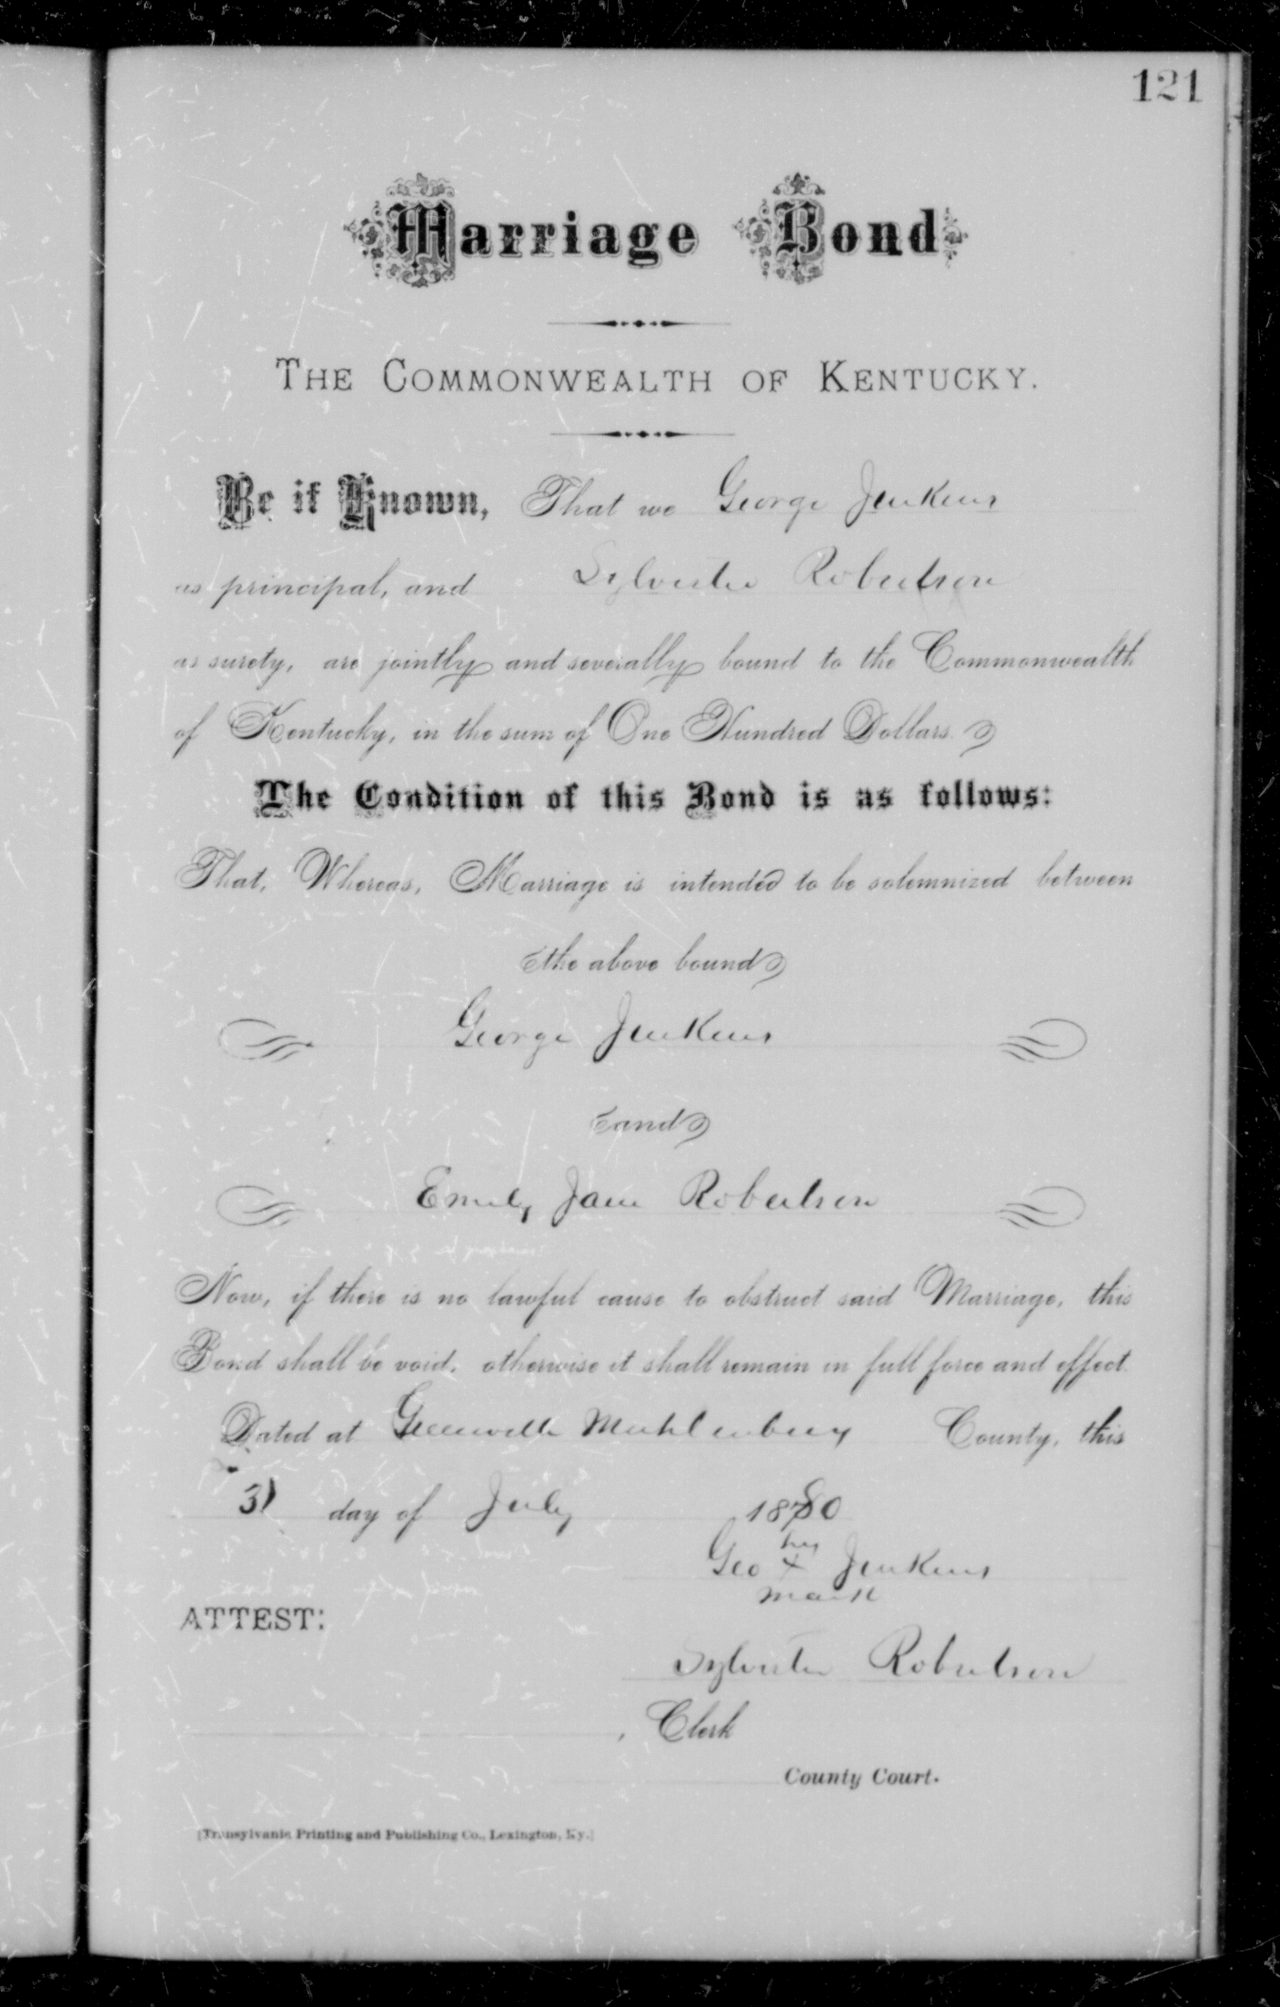 121
Marriage Bond
THE COMMONWEALTH OF KENTUCKY.
Be it Known, That we George Jenkins
as principal, and Sylvester Robertson
as surety, are jointly and severally bound to the Commonwealth
of Kentucky, in the sum of One Hundred Dollars.
The Condition of this Bond is as follows:
That, Whereas, Marriage is intended to be solemnized between
the above bound
George Jenkins
and
Emily Jane Robertson
Now, if there is no lawful cause to obstruct said Marriage, this
Bond shall be void, otherwise it shall remain in full force and effect.
Dated at Greenville Muhlenburg County, this
31 day of July 1880
his
Geo X Jenkins
mark
ATTEST:
Sylvester Robertson
, Clerk
County Court.
[Transylvania Printing and Publishing Co., Lexington, Ky.]